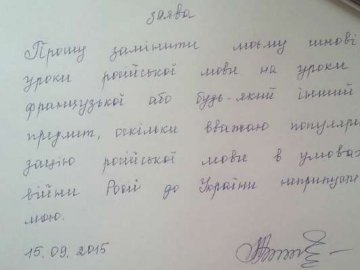 заява
Прошу замінити моєму синові
уроки російської мови на уроки
французької або будь-який інший
предмет, оскільки вважаю популяри
зацію російської мови в умовах
війни Росії до України неприпусти
мою.
15.09.2015